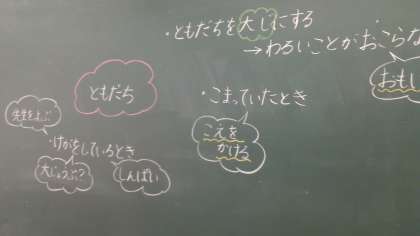 ・ともだちを大じにする
→わるいことがおこらな
おもし
ともだち
・こまっていたとき
こえを
かける
先生をよぶ
・けがをしているとき
大じょうぶ？
しんぱい